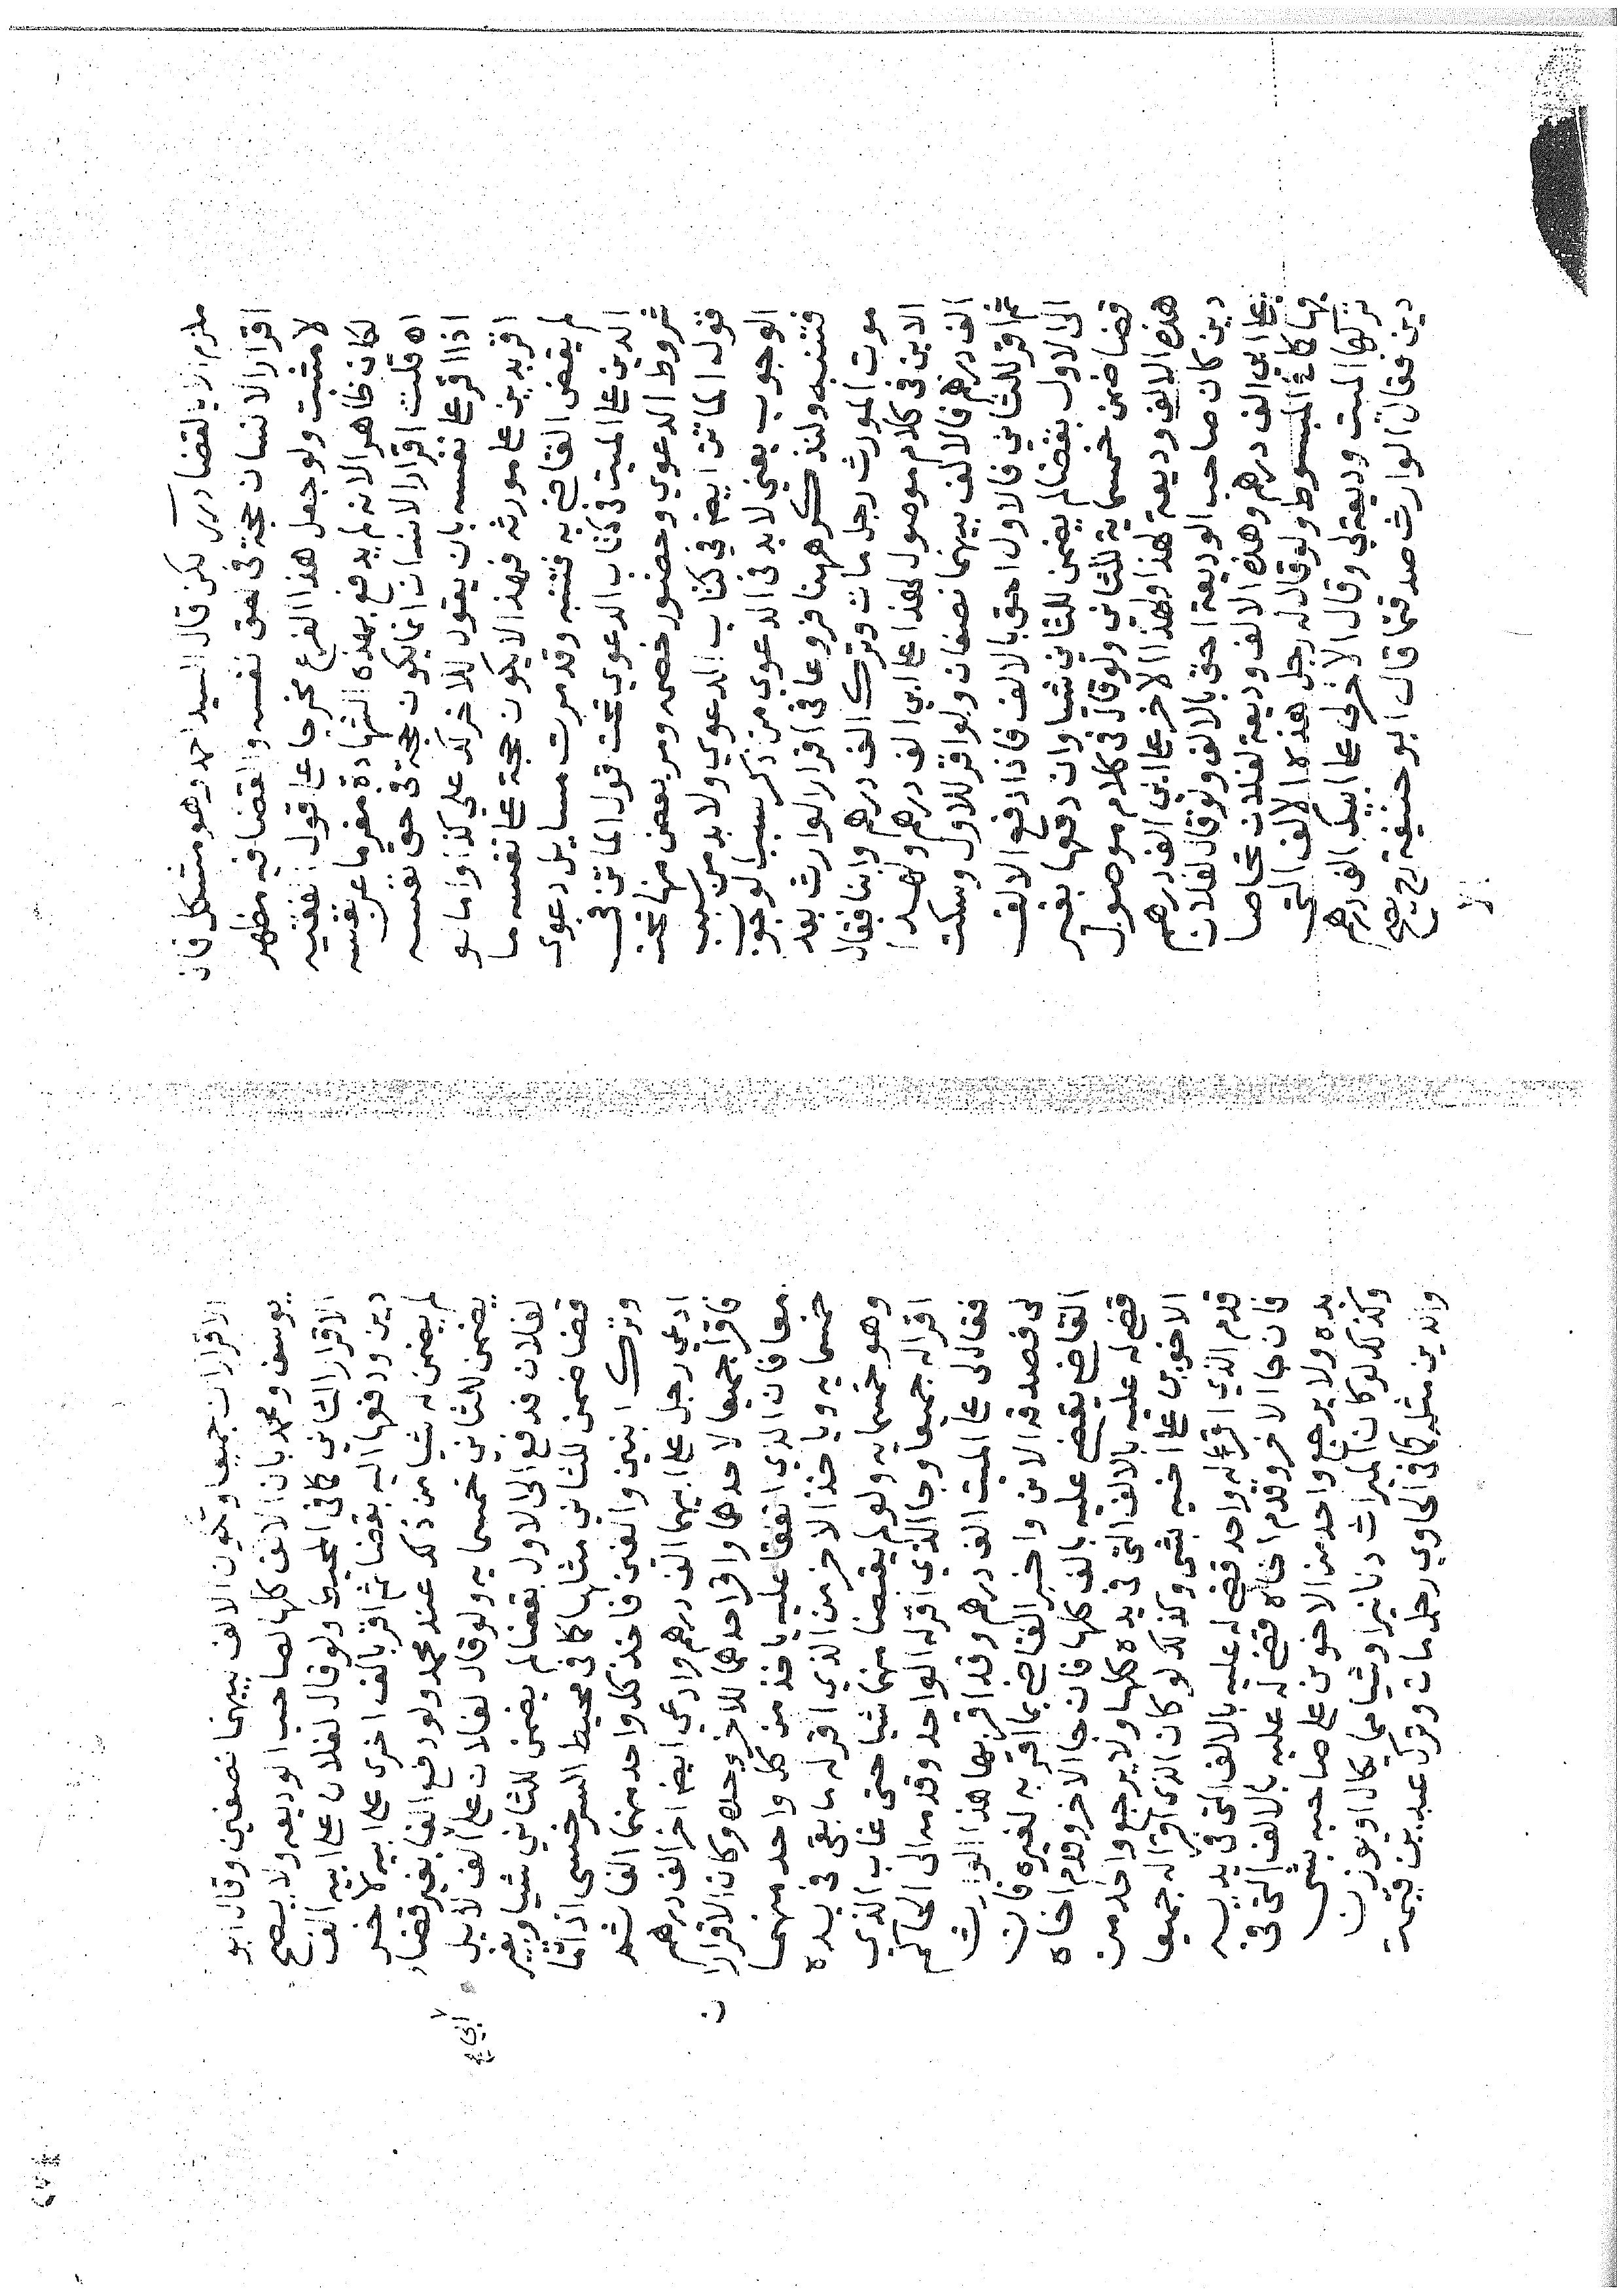 ملزم الا بالقضا درر لكن قال السيد احمد وهو مشكل فان
اقرار الانسان حجة في حق نفسه والقضا فيه مظهر
لا مثبت ولو جعل هذا الفرع مخرجا على قول الفقيه
لكان ظاهرا لانه لم يدفع بهذه الشهادة مغرما عن نفسه
اه قلت اقرار الانسان انما يكون حجة في حق نفسه
اذا اقر على نفسه بان يقول للاخر لك علي كذا واما لو
اقر بدين على مورثه فهذا لا يكون حجة على نفسه ما
لم يقض القاضي به فتنبه وقد مرت مسايل دعوى
الدين على الميت في كتاب الدعوي تحت قول الماتن في
شروط الدعوي وحضور خصمه ومر بعض منها تحت
قول الماتن ايضا في كتاب الدعوي ولا بد من سبب
الوجوب يعني لا بد في الدعوى من ذكر سبب الوجوب
فتنبه ولنذكر ههنا فروعا في اقرار الوارث بعد
موت المورث رجل مات وترك الف درهم وابنا فقال
الابن في كلام موصول لهذا على ابي الف درهم ولهذا
الف درهم فالالف بينهما نصفان ولو اقر للاول وسكت
ثم اقر للثاني فالاول احق بالالف فاذا دفع الالف
الى الاول بقضا لم يضمن للثاني شيا وان دفعها بغير
قضا ضمن خمسماية للثاني ولو قال في كلام موصول
هذه الالف وديعة لهذا ولهذا الاخر على ابي الف درهم
دين كان صاحب الوديعة احق بالالف ولو قال لفلان
على ابي الف درهم وهذه الالف وديعة لفلان تحاصا
فيها كما في المبسوط ولو قال له رجل هذه الالف التي
تركها الميت وديعة لي وقال الاخر لي على ابيك الف درهم
دين فقال الوارث صدقتما قال ابو حنيفة رح يصح
الا
الاقراران جميعا وتكون الالف بينهما نصفين وقال ابو
يوسف ومحمد بان الالف كلها لصاحب الوديعه ولا يصح
الاقرار الثاني كما في المحيط ولو قال لفلان على ابيه الف
دين ودفعها اليه بقضا ثم اقر بالف اخرى على ابيه لاخر
لم يضمن له شيا من ذلك عند محمد ولو دفع الفا بغير قضاء
يضمن للثاني خمسمايه ولو قال لفلان على الف لا بل
لابي ع
لفلان فدفع الى الاول بقضا لم يضمن للثاني شيا وبغير
قضا ضمن للثاني مثلها كما في محيط السرخسي اذا مات
وترك ابنين والفين فاخذ كل واحد منهما الفا ثم
ادعى رجل على ابيهما الف درهم وادعى ايضا اخر الف درهم
فاقرا جميعا لاحدهما واقر احدهما للاخر وحده وكان الاقرارا
ن
معا فان الذي اتفقا عليه ياخذ من كل واحد منهما
خمسمايه وياخذ الاخر من الذي اقر له ما بقى في يده
وهو خمسمايه ولو لم يقتضا منهما شيا حتى غاب الذي
اقرا له جميعا وجا الذي اقر له الواحد وقدمه الى الحاكم
فقال لي على الميت الف درهم وقد اقر بها هذا الوارث
لي فصدقه الابن واخبر القاضي بما اقر به لغيره فان
القاضي يقضي عليه بالف كلها فان جا الاخر وقدم اخاه
قضى له عليه بالالف التي في يده كلها ولا يرجع واحد من
الاخوين على اخيه بشي وكذلك لو كان الذي اقرا له جميعا
قدم الذي اقر له واحد قضى له عليه بالالف التي في يديه
فان جا الاخر وقدم اخاه قضى له عليه بالالف التي في
يده ولا يرجع واحد من الاخوين على صاحبه بشي
وكذلك لو كان الميراث دنانيرا وشيا مما يكال او يوزن
والدين مثله كما في الحاوي رجل مات وترك عبدين قيمة